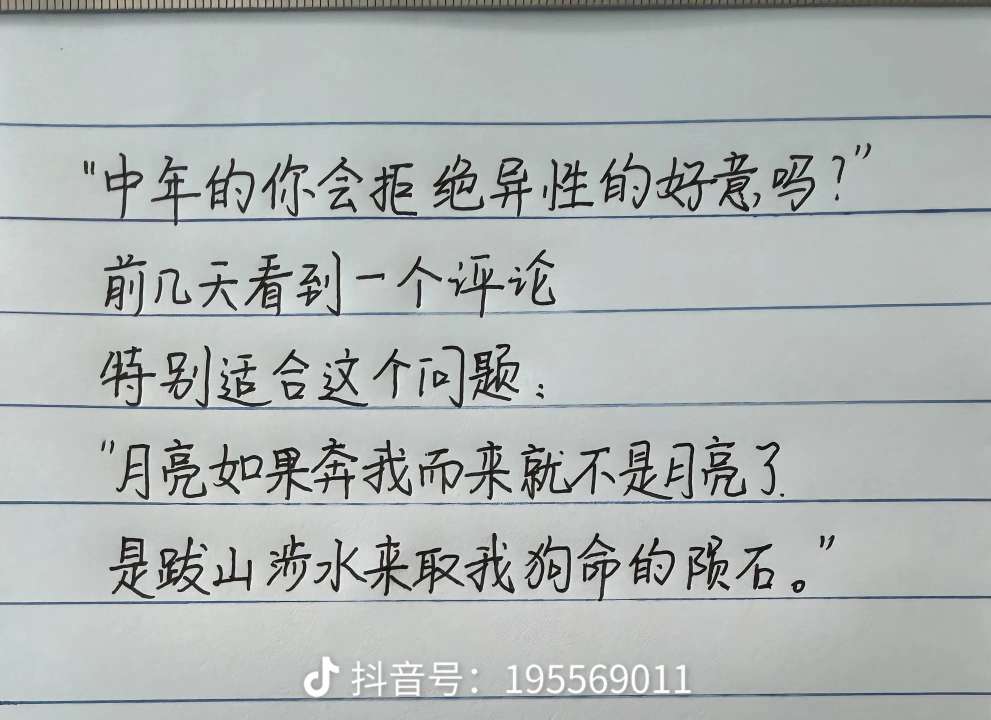 "中年的你会拒绝异性的好意吗?"
前几天看到一个评论
特别适合这个问题:
"月亮如果奔我而来就不是月亮了
是跋山涉水来取我狗命的陨石。"
抖音号:195569011